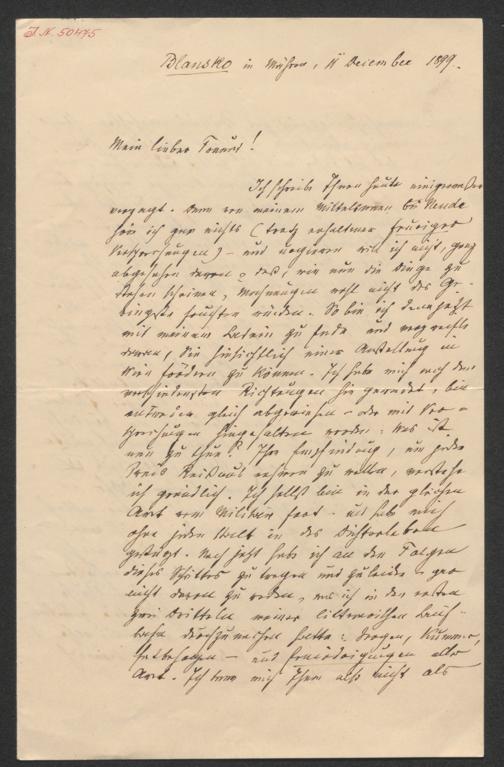 J. N. 50475
Blansko in Mähren, 11 December 1899.
Mein lieber Freund!
Ich schreibe Ihnen heute einigermaßen
verzagt. Denn von meinem Mittelsmann bei
höre ich gar nichts (trotz erhaltener feuriger
Versprechungen) – und urgieren will ich nicht, ganz
abgesehen davon, daß, wie nun die Dinge zu
stehen scheinen, Mahnungen wohl nicht das Ge-
ringste fruchten würden. So bin ich denn jetzt
mit meinem Latein zu Ende und verzweifle
daran, Sie hinsichtlich einer Anstellung in
Wien fördern zu können. Ich habe mich nach den
verschiedensten Richtungen hin gewendet, bin
entweder gleich abgewiesen – oder mit Ver-
sprechungen hingehalten worden. Was ist
nun zu thun? Ihre Empfindung, um jeden
Preis Reißaus nehmen zu wollen, verstehe
ich gründlich. Ich selbst bin in der gleichen
Art vom Militär fort – und habe mich
ohne jeden Halt in das Dichterleben
gestürzt. Noch jetzt habe ich an den Folgen
dieses Schrittes zu tragen und zu leiden – gar
nicht davon zu reden, was ich in den ersten
zwei Dritteln meiner litterarischen Lauf-
bahn durchzumachen hatte: Sorgen, Kummer,
– und Erniedrigungen aller
Art. Ich kann mich Ihnen also nicht als